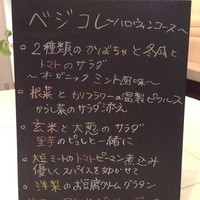 ベジコレ
〜ハロウィンコース〜
2種類のかぼちゃと冬瓜と
トマトのサラダ
〜オーガニックミント風味〜
根菜とカリフラワーの温製ピクルス
からし菜のサラダ添え
玄米と大葱のサラダ
里芋のピュレと一緒に
大豆ミートのトマトピーマン煮込み
優しくスパイスを効かせて
洋梨のお豆腐クリームグラタン